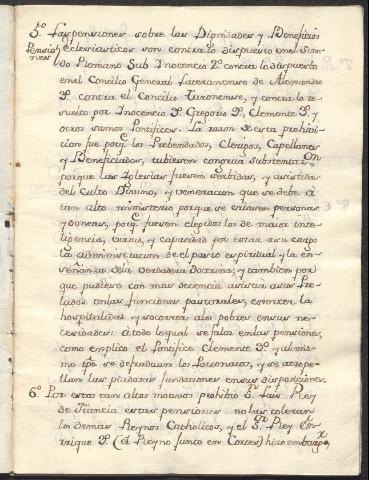 5º Las pensiones sobre las Dignidades y Beneficios
Pensiones
eclesiasticos son contra lo dispuesto en el Sino-
do Romano Sub Inocencio 2º contra lo dispuesto
en el Concilio General Lateranense de Alexandro
3º contra el Concilio Turonense, y contra lo re-
suelto por Inocencio 3º Gregorio 9º, Clemente 3º, y
otros sumos Pontifices. La razon de esta prohivi-
cion fue porq.e los Prebendados, Clerigos, Capellanes
y Beneficiados, tubiesen congrua sustentac.on
porque las Iglesias fuesen servidas, y asistidas
del Culto Divino, y veneracion que se debe á
tan alto ministerio porque se criasen personas
ydoneas, porq.e fuesen elegidos los de maior inte-
ligencia, virtud, y capacidad por estar a su cargo
la administracion de el pasto espiritual y la en-
señanza de la verdadera doctrina; y tambien por
que pudiesen con mas decencia asistir a sus Pre-
lados en las funciones pastorales, exercer la
hospitalidad y socorrer a los pobres en sus ne-
cesidades: á todo lo qual se falta en las pensiones,
como explico el Pontifice Clemente 3º y al mis-
mo tpō se defraudan los Patronatos, y se atrope-
llan las piadosas fundaciones en sus disposiciones.
6º Por estos tan altos motivos prohibió S. Luis Rey
de Francia estas pensiones no las toleran
los demas Reynos Catholicos, y el S.or Rey En-
rrique 3º (el Reyno junto en Cortes) hizo embargo,